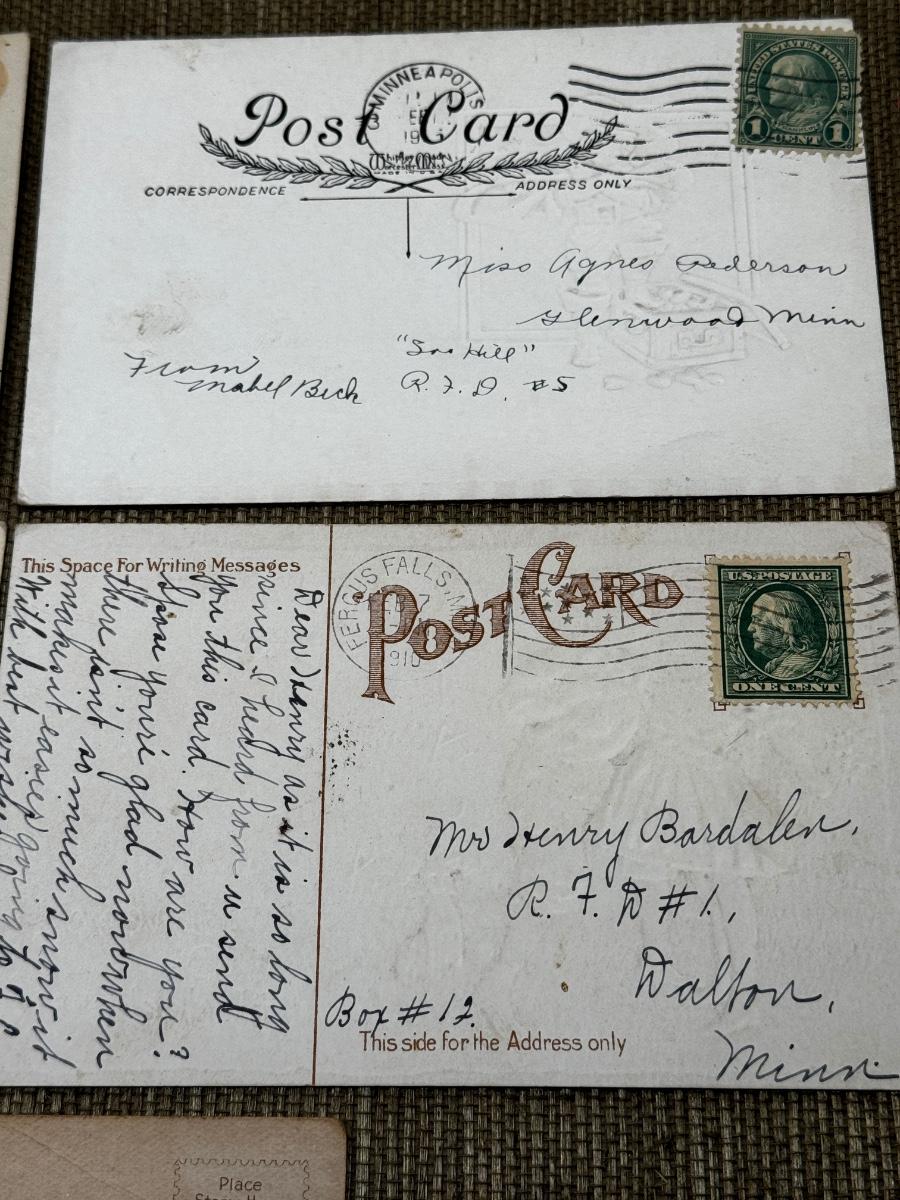 MINNEAPOLIS
Post Card
Whitney Made
Worcester Mass
MADE IN U.S.A.
CORRESPONDENCE
ADDRESS ONLY
UNITED STATES POSTAGE
FRANKLIN
1 CENT 1
Miss Agnes Pederson
Glenwood Minn
"Soo Hill"
R. F. D. #5
From
Mabel Beck
This Space For Writing Messages
Dear Henry as it is so long
since I heard from u send
you this card. How are you?
I'spose your'e glad now when
there isn't so much snow it
makes it easier going to
With best
FERGUS FALLS, M
1910
POST CARD
U.S. POSTAGE
ONE CENT
Mr Henry Bardalen,
R. F. D #1.,
Dalton,
Minn.
Box #12.
This side for the Address only
Place